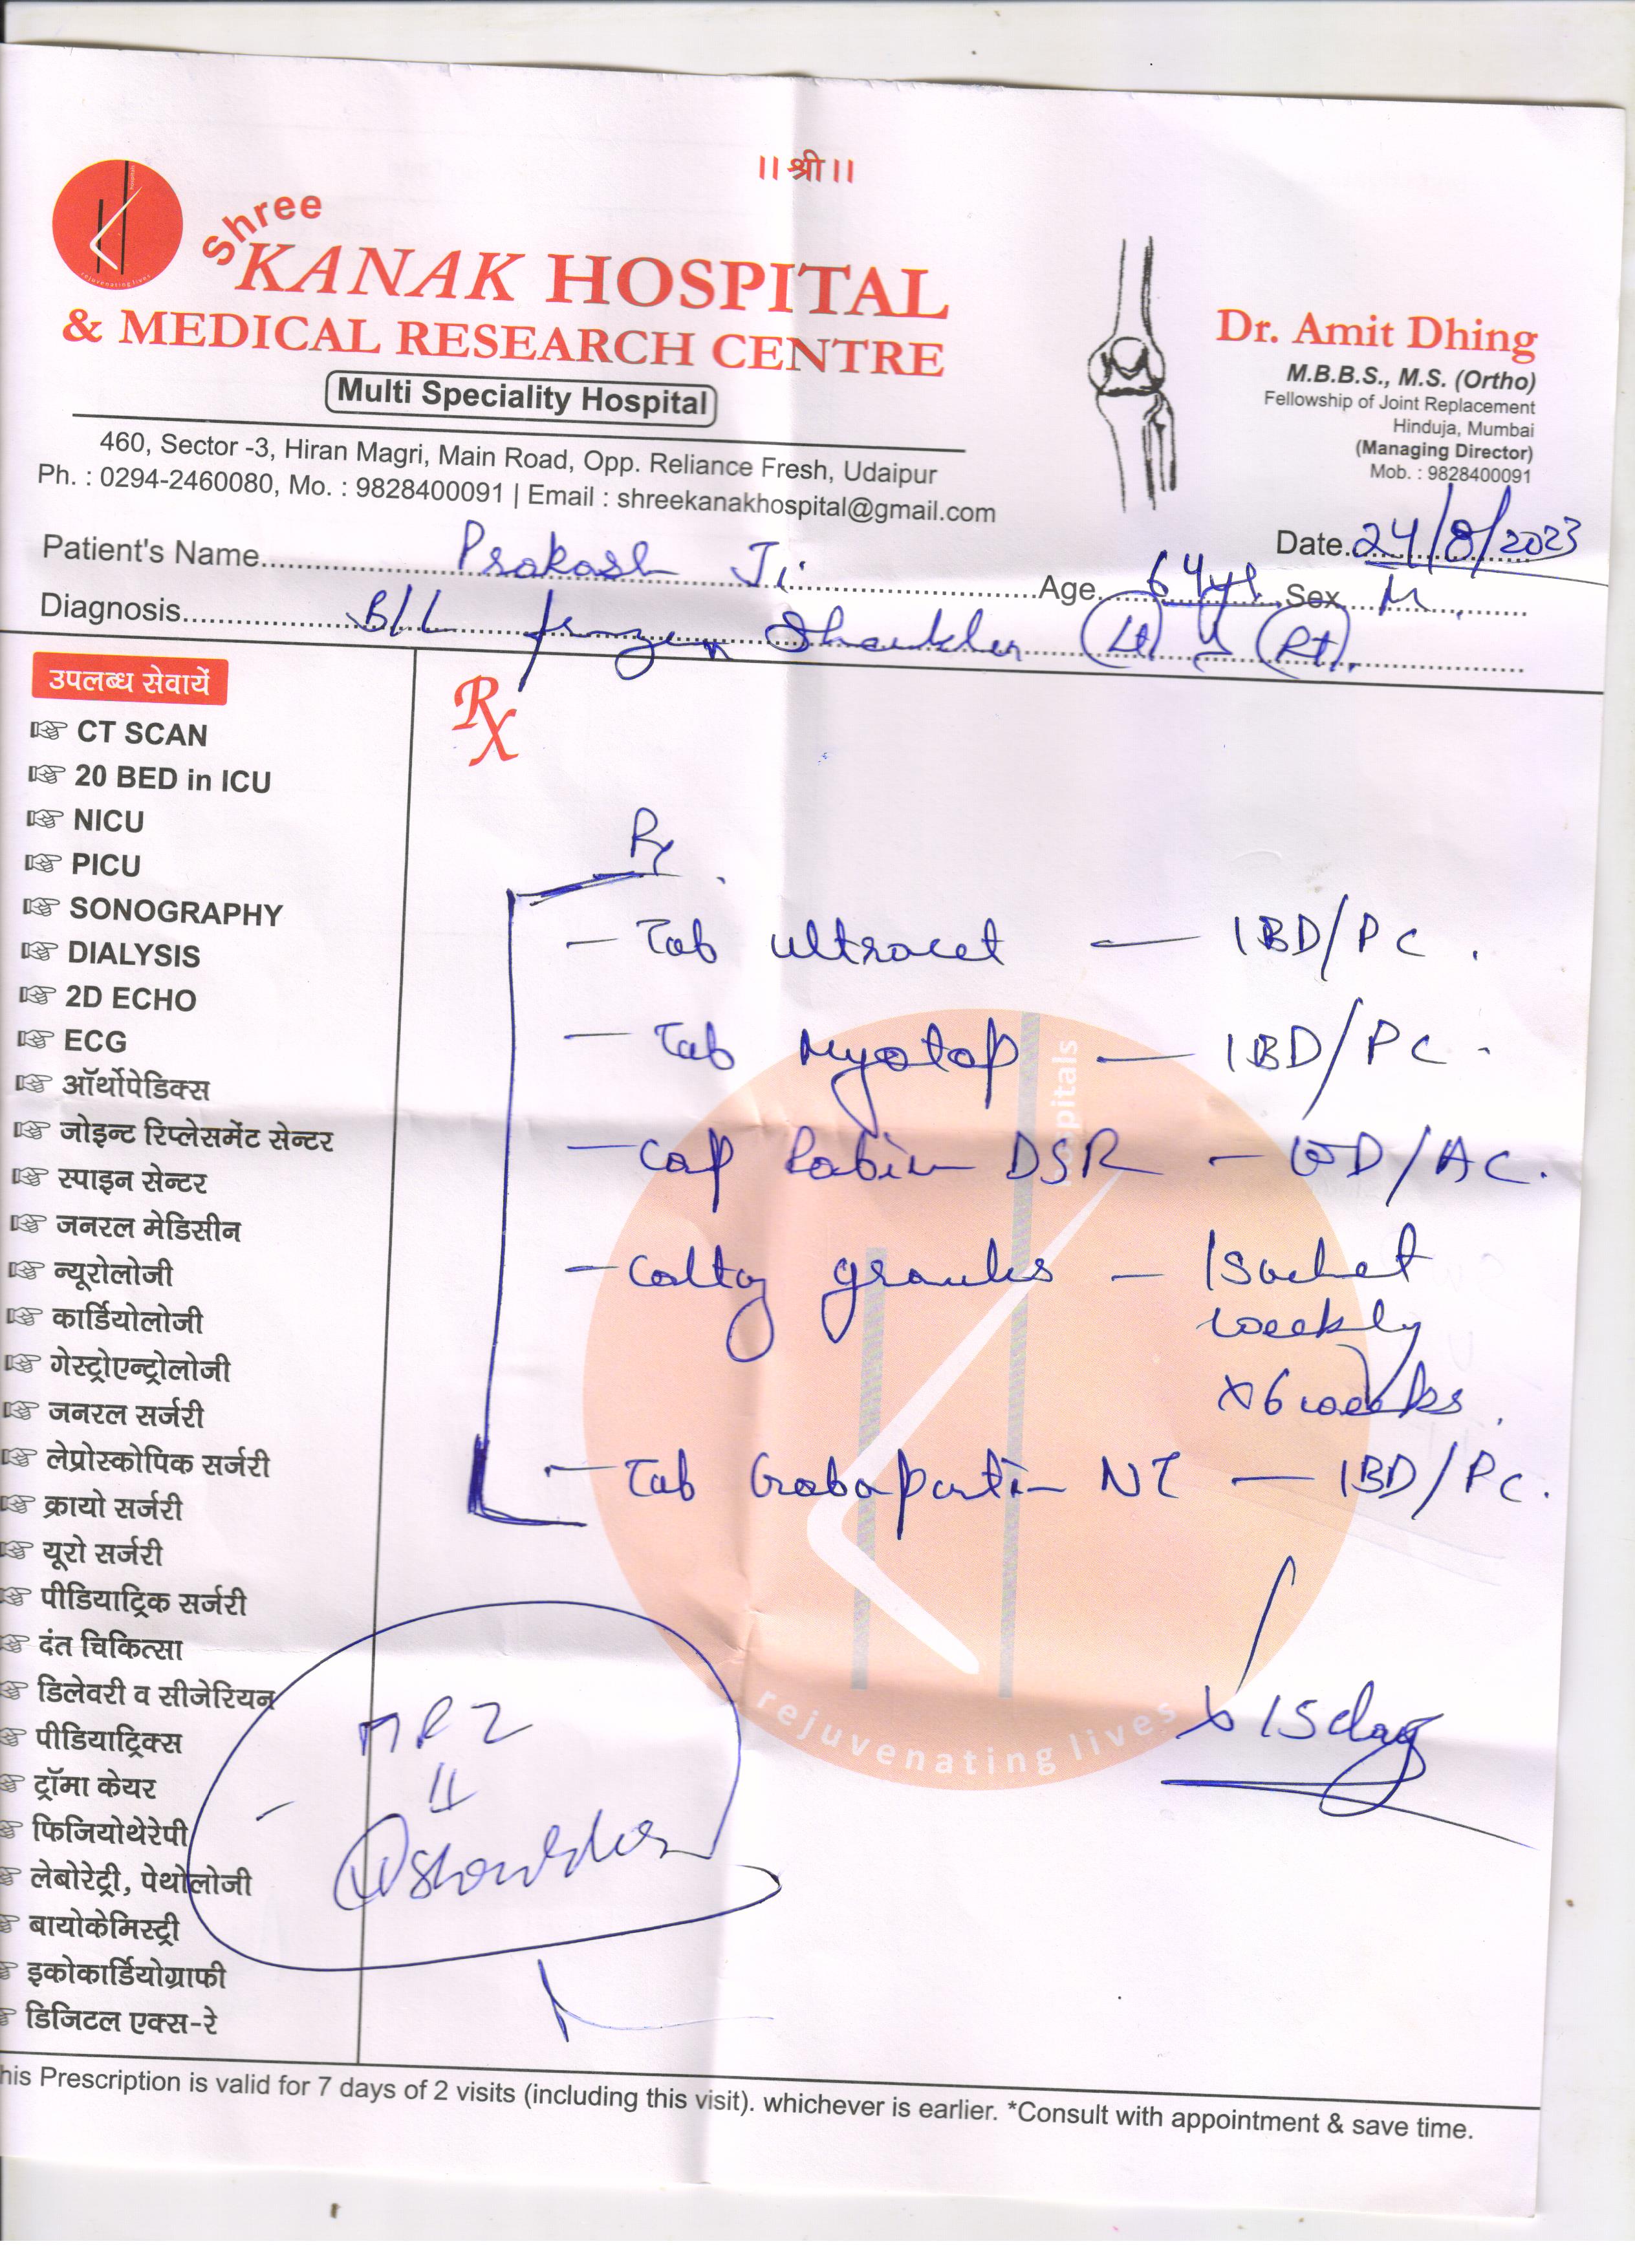 ।। श्री ।।
Shree
KANAK HOSPITAL
& MEDICAL RESEARCH CENTRE
Multi Speciality Hospital
460, Sector -3, Hiran Magri, Main Road, Opp. Reliance Fresh, Udaipur
Ph. : 0294-2460080, Mo. : 9828400091 | Email : shreekanakhospital@gmail.com
Dr. Amit Dhing
M.B.B.S., M.S. (Ortho)
Fellowship of Joint Replacement
Hinduja, Mumbai
(Managing Director)
Mob. : 9828400091
Date 24/8/2023
Patient's Name Prakash Ji Age 64 yr. Sex M.
Diagnosis B/L frozen Shoulder (Lt) (Rt).
उपलब्ध सेवायें
CT SCAN
20 BED in ICU
NICU
PICU
SONOGRAPHY
DIALYSIS
2D ECHO
ECG
ऑर्थोपेडिक्स
जोइन्ट रिप्लेसमेंट सेन्टर
स्पाइन सेन्टर
जनरल मेडिसीन
न्यूरोलोजी
कार्डियोलोजी
गेस्ट्रोएन्ट्रोलोजी
जनरल सर्जरी
लेप्रोस्कोपिक सर्जरी
क्रायो सर्जरी
यूरो सर्जरी
पीडियाट्रिक सर्जरी
दंत चिकित्सा
डिलेवरी व सीजेरियन
पीडियाट्रिक्स
ट्रॉमा केयर
फिजियोथेरेपी
लेबोरेट्री, पेथोलोजी
बायोकेमिस्ट्री
इकोकार्डियोग्राफी
डिजिटल एक्स-रे
Rx
Rx
- Tab ultracet — 1BD/PC.
- Tab Myotop — 1BD/PC.
- Cap Rabin DSR - OD/AC.
- granules - 1 Sachet
weekly
x 6 weeks.
- Tab Gabapentin NT — 1BD/PC.
x 15 day
shoulder
hospitals
rejuvenating lives
his Prescription is valid for 7 days of 2 visits (including this visit). whichever is earlier. *Consult with appointment & save time.